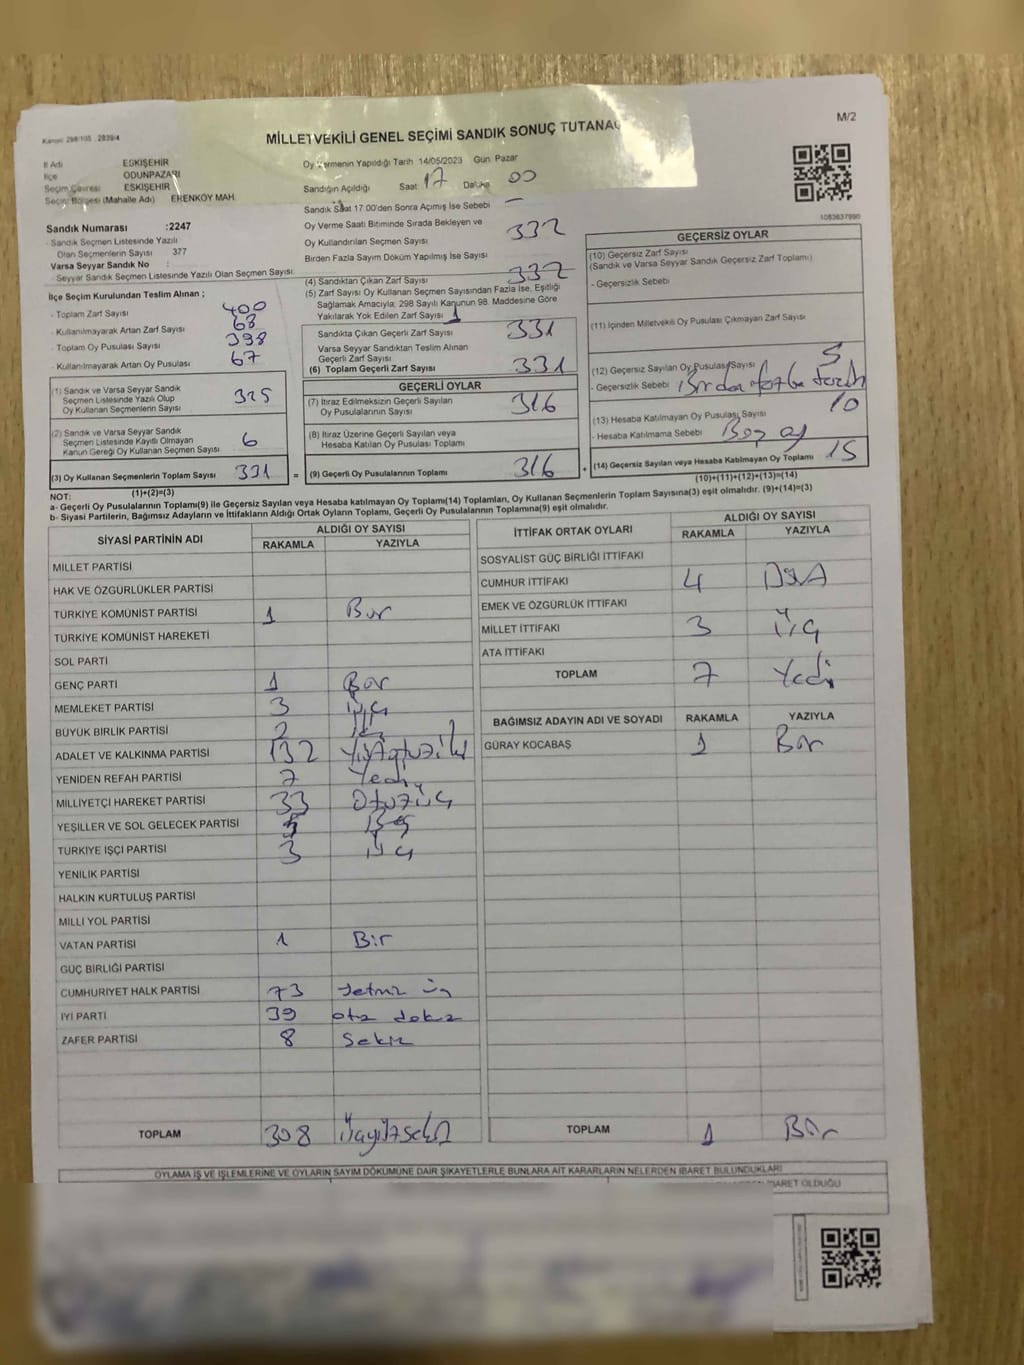 M/2
Kanun: 298/105 , 2839/4
MİLLETVEKİLİ GENEL SEÇİMİ SANDIK SONUÇ TUTANAĞ
İl Adı ESKİŞEHİR
İlçe ODUNPAZARI
Seçim Çevresi ESKİŞEHİR
Seçim Bölgesi (Mahalle Adı) ERENKÖY MAH.
Oy Vermenin Yapıldığı Tarih 14/05/2023 Gün Pazar
Sandığın Açıldığı Saat 17 Dakika 00
Sandık Saat 17:00'den Sonra Açımış İse Sebebi —
1083637990
Sandık Numarası :2247
- Sandık Seçmen Listesinde Yazılı
Olan Seçmenlerin Sayısı 377
Varsa Seyyar Sandık No :
- Seyyar Sandık Seçmen Listesinde Yazılı Olan Seçmen Sayısı:
İlçe Seçim Kurulundan Teslim Alınan ;
- Toplam Zarf Sayısı 400
- Kullanılmayarak Artan Zarf Sayısı 68
- Toplam Oy Pusulası Sayısı 398
- Kullanılmayarak Artan Oy Pusulası 67
(1) Sandık ve Varsa Seyyar Sandık
Seçmen Listesinde Yazılı Olup
Oy Kullanan Seçmenlerin Sayısı 325
(2) Sandık ve Varsa Seyyar Sandık
Seçmen Listesinde Kayıtlı Olmayan
Kanun Gereği Oy Kullanan Seçmen Sayısı 6
(3) Oy Kullanan Seçmenlerin Toplam Sayısı 331
(1)+(2)=(3)
Oy Verme Saati Bitiminde Sırada Bekleyen ve
Oy Kullandırılan Seçmen Sayısı 332
Birden Fazla Sayım Döküm Yapılmış İse Sayısı
(4) Sandıktan Çıkan Zarf Sayısı 332
(5) Zarf Sayısı Oy Kullanan Seçmen Sayısından Fazla İse, Eşitliği
Sağlamak Amacıyla; 298 Sayılı Kanunun 98. Maddesine Göre
Yakılarak Yok Edilen Zarf Sayısı 1
Sandıkta Çıkan Geçerli Zarf Sayısı 331
Varsa Seyyar Sandıktan Teslim Alınan
Geçerli Zarf Sayısı
(6) Toplam Geçerli Zarf Sayısı 331
GEÇERLİ OYLAR
(7) İtiraz Edilmeksizin Geçerli Sayılan
Oy Pusulalarının Sayısı 316
(8) İtiraz Üzerine Geçerli Sayılan veya
Hesaba Katılan Oy Pusulası Toplamı
= (9) Geçerli Oy Pusulalarının Toplamı 316 +
GEÇERSİZ OYLAR
(10) Geçersiz Zarf Sayısı
(Sandık ve Varsa Seyyar Sandık Geçersiz Zarf Toplamı)
- Geçersizlik Sebebi
(11) İçinden Milletvekili Oy Pusulası Çıkmayan Zarf Sayısı
(12) Geçersiz Sayılan Oy Pusulası Sayısı 5
- Geçersizlik Sebebi Birden fazla tercih
(13) Hesaba Katılmayan Oy Pusulası Sayısı 10
- Hesaba Katılmama Sebebi Boş oy
(14) Geçersiz Sayılan veya Hesaba Katılmayan Oy Toplamı 15
(10)+(11)+(12)+(13)=(14)
NOT:
a- Geçerli Oy Pusulalarının Toplamı(9) ile Geçersiz Sayılan veya Hesaba katılmayan Oy Toplamı(14) Toplamları, Oy Kullanan Seçmenlerin Toplam Sayısına(3) eşit olmalıdır. (9)+(14)=(3)
b- Siyasi Partilerin, Bağımsız Adayların ve İttifakların Aldığı Ortak Oyların Toplamı, Geçerli Oy Pusulalarının Toplamına(9) eşit olmalıdır.
SİYASİ PARTİNİN ADI ALDIĞI OY SAYISI
RAKAMLA YAZIYLA
MİLLET PARTİSİ
HAK VE ÖZGÜRLÜKLER PARTİSİ
TÜRKİYE KOMÜNİST PARTİSİ 1 Bir
TÜRKİYE KOMÜNİST HAREKETİ
SOL PARTİ
GENÇ PARTİ 1 Bir
MEMLEKET PARTİSİ 3 Üç
BÜYÜK BİRLİK PARTİSİ 2 İki
ADALET VE KALKINMA PARTİSİ 132 Yüzotuziki
YENİDEN REFAH PARTİSİ 7 Yedi
MİLLİYETÇİ HAREKET PARTİSİ 33 Otuzüç
YEŞİLLER VE SOL GELECEK PARTİSİ 5 Beş
TÜRKİYE İŞÇİ PARTİSİ 3 Üç
YENİLİK PARTİSİ
HALKIN KURTULUŞ PARTİSİ
MİLLİ YOL PARTİSİ
VATAN PARTİSİ 1 Bir
GÜÇ BİRLİĞİ PARTİSİ
CUMHURİYET HALK PARTİSİ 73 Yetmiz üç
İYİ PARTİ 39 otuz dokuz
ZAFER PARTİSİ 8 Sekiz
TOPLAM 308 Üçyüzsekiz
İTTİFAK ORTAK OYLARI ALDIĞI OY SAYISI
RAKAMLA YAZIYLA
SOSYALİST GÜÇ BİRLİĞİ İTTİFAKI
CUMHUR İTTİFAKI 4 Dört
EMEK VE ÖZGÜRLÜK İTTİFAKI
MİLLET İTTİFAKI 3 Üç
ATA İTTİFAKI
TOPLAM 7 Yedi
BAĞIMSIZ ADAYIN ADI VE SOYADI RAKAMLA YAZIYLA
GÜRAY KOCABAŞ 1 Bir
TOPLAM 1 Bir
OYLAMA İŞ VE İŞLEMLERİNE VE OYLARIN SAYIM DÖKÜMÜNE DAİR ŞİKAYETLERLE BUNLARA AİT KARARLARIN NELERDEN İBARET BULUNDUKLARI
İBARET OLDUĞU